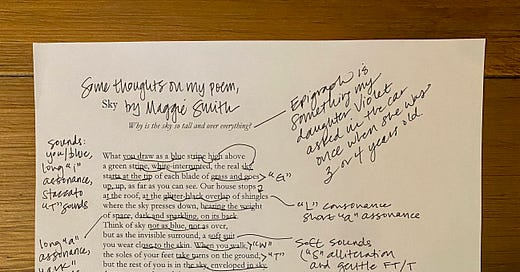 Some thoughts on my poem,
Sky by Maggie Smith
Why is the sky so tall and over everything?
Epigraph is
something my
daughter Violet
asked in the car
once when she was
3 or 4 years old
sounds:
you/blue,
long "i"
assonance,
staccato
"T" sounds
What you draw as a blue stripe high above
a green stripe, white-interrupted, the real sky
starts at the tip of each blade of grass and goes
"G"
up, up, as far as you can see. Our house stops
at the roof, at the glitter-black overlap of shingles
where the sky presses down, bearing the weight
"L" consonance
short "a" assonance
of space, dark and sparkling, on its back.
Think of sky not as blue, not as over,
but as the invisible surround, a soft suit
you wear close to the skin. When you walk,
"W"
the soles of your feet take turns on the ground,
"T"
but the rest of you is in the sky, enveloped in sky.
long "a"
assonance,
soft sounds
("S" alliteration
and gentle FT/T